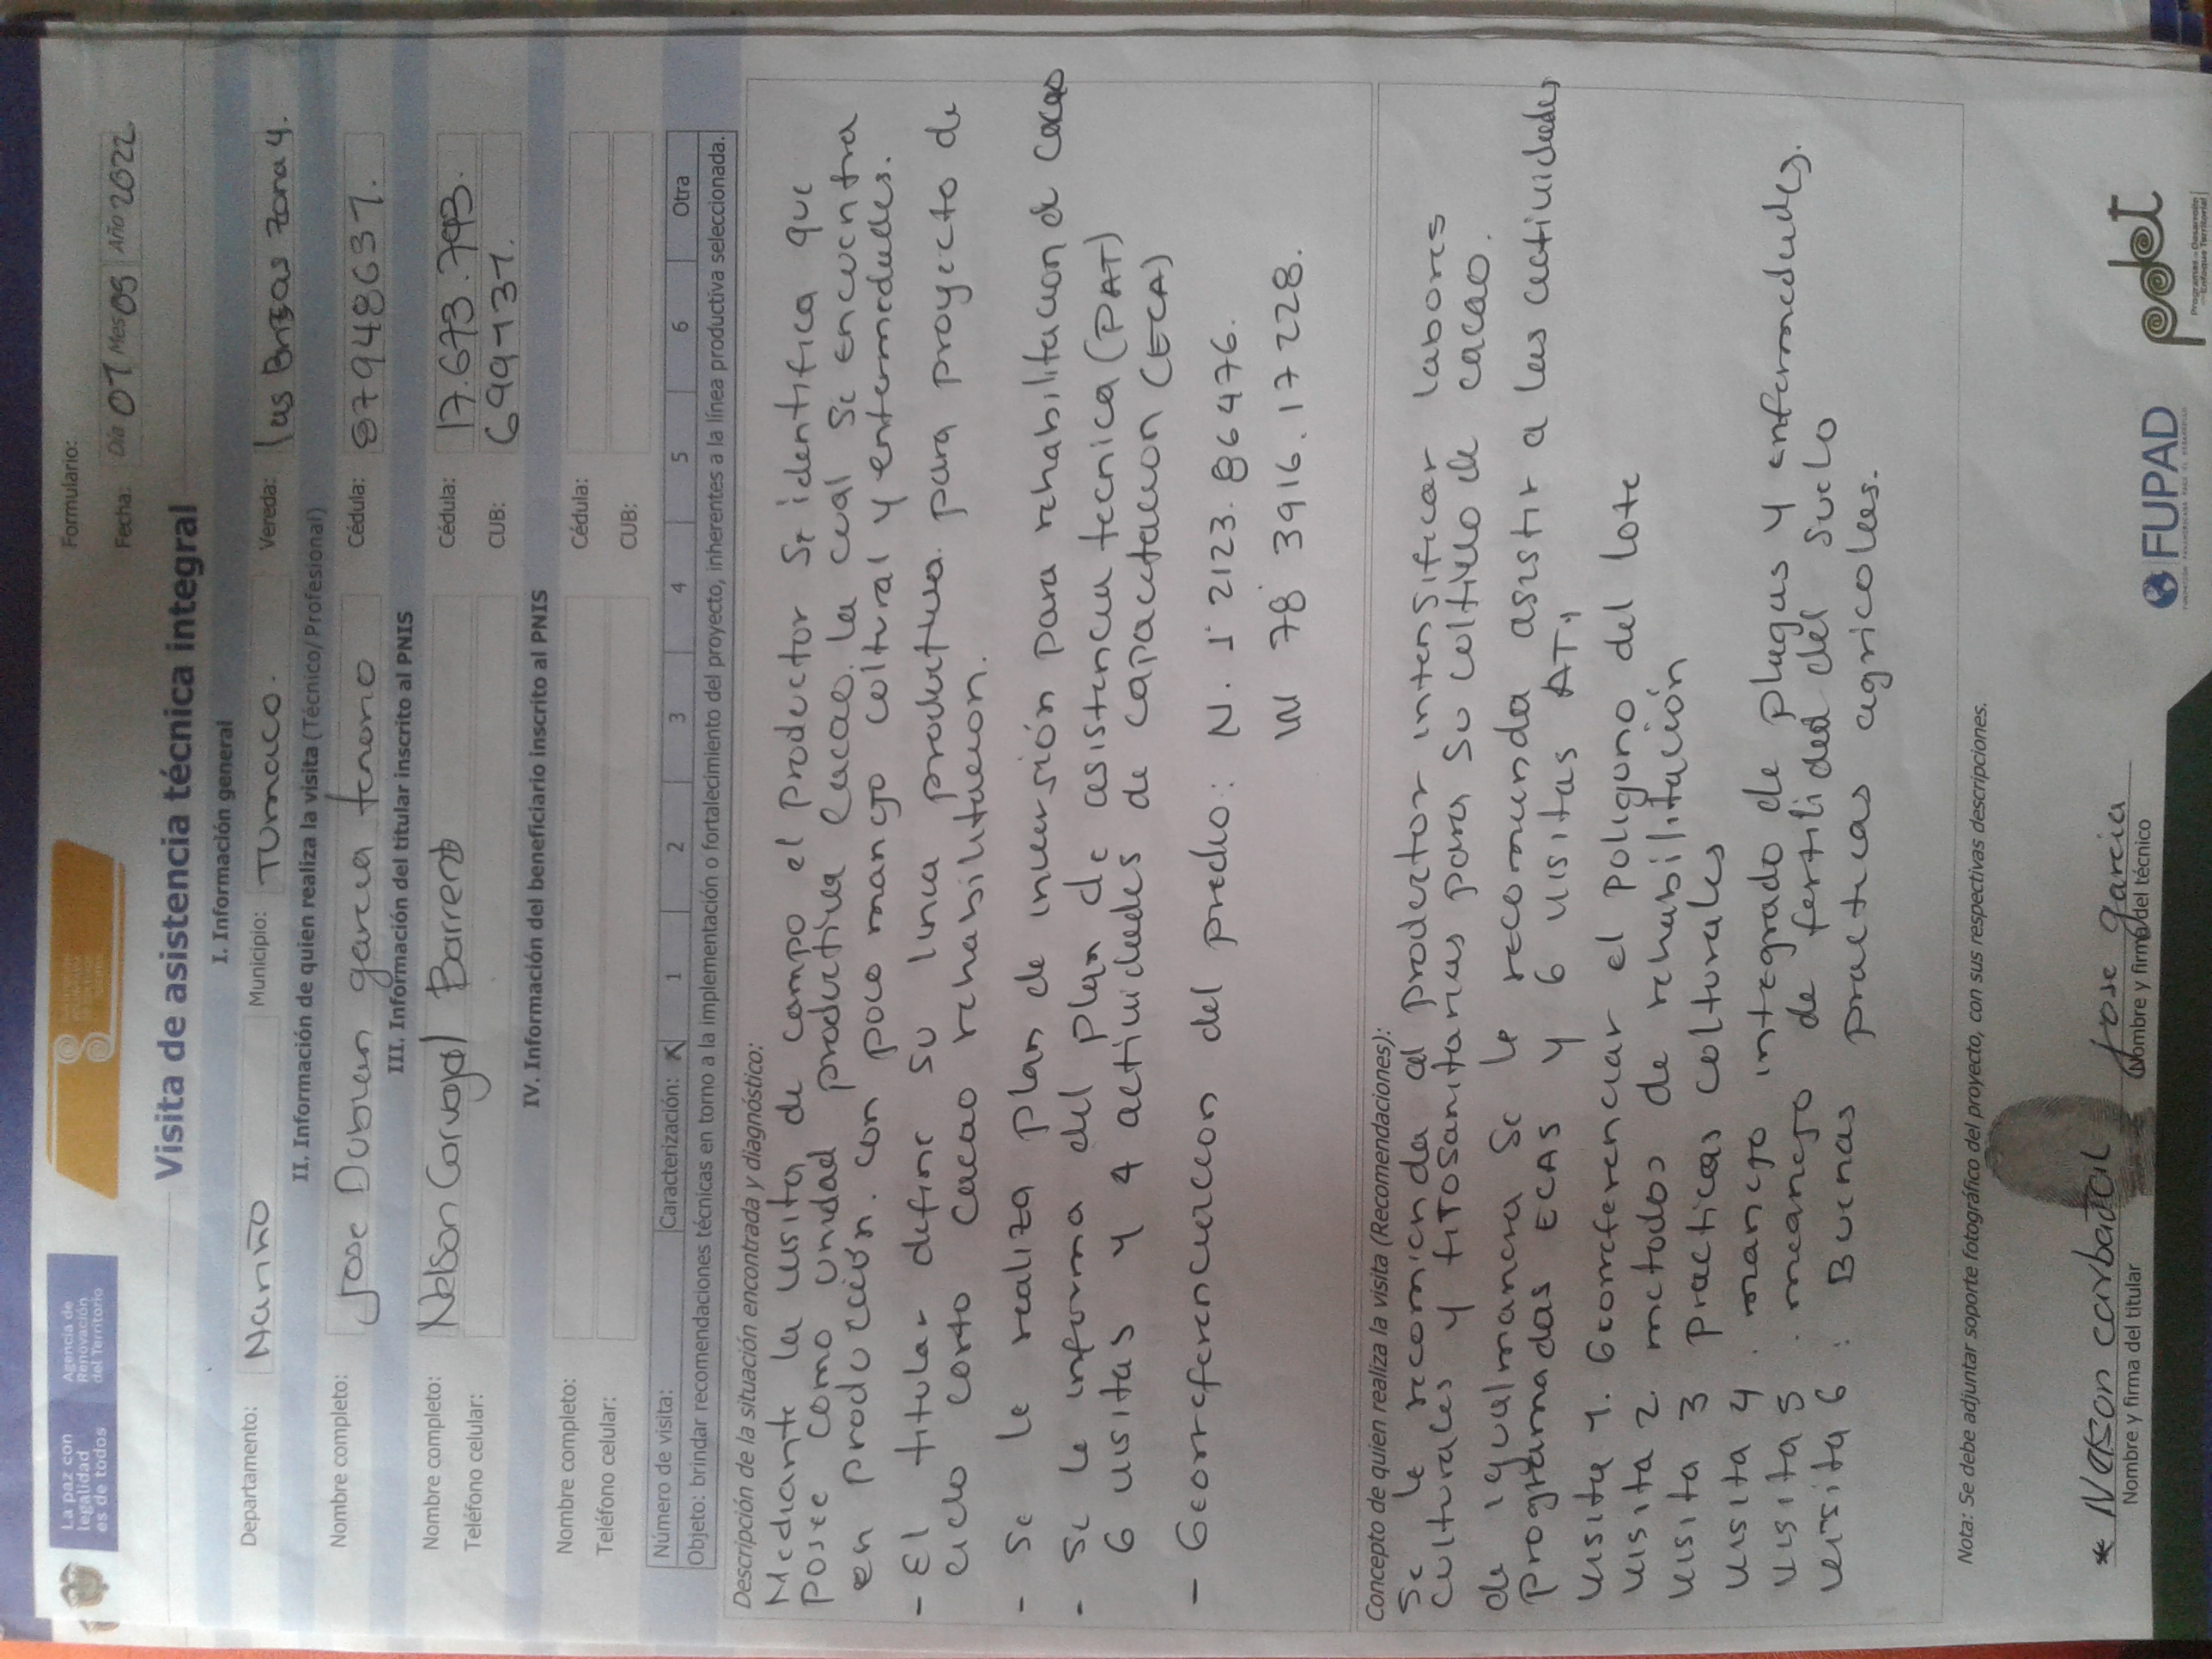 La paz con
legalidad
es de todos
Agencia de
Renovación
del Territorio
Formulario:
Fecha: Día 07 Mes 05 Año 2022
Visita de asistencia técnica integral
I. Información general
Departamento: Nariño Municipio: Tumaco. Vereda: las Brisas zona 4.
II. Información de quien realiza la visita (Técnico/ Profesional)
Nombre completo: Jose Duban garcia tenorio Cédula: 87948637.
III. Información del titular inscrito al PNIS
Nombre completo: Nelson Carvajal Barrero Cédula: 17.673.793.
Teléfono celular: CUB: 699737.
IV. Información del beneficiario inscrito al PNIS
Nombre completo: Cédula:
Teléfono celular: CUB:
Número de visita: Caracterización: X 1 2 3 4 5 6 Otra
Objeto: brindar recomendaciones técnicas en torno a la implementación o fortalecimiento del proyecto, inherentes a la línea productiva seleccionada.
Descripción de la situación encontrada y diagnóstico:
Mediante la visita de campo el productor se identifica que
posee como unidad productiva cacao. la cual se encuentra
en producción. con poco manejo coltural y enfermedades.
- El titular define su linea productiva para proyecto de
ciclo corto cacao rehabilitacion.
- se le realiza plan de inversión para rehabilitacion de cacao
- se le informa del plan de asistencia tecnica (PAT)
6 visitas y 4 actividades de capacitacion (ECA)
- Georreferenciacion del predio: N. 1° 2123.86476.
W 78° 3916.17228.
Concepto de quien realiza la visita (Recomendaciones):
Se le recomienda al productor intensificar labores
culturales y fitosanitarias para su coltivo de cacao.
de igual manera se le recomienda asistir a las actividades
programadas ECAS y 6 visitas AT,
visita 1. Georreferenciar el poligono del lote
visita 2 metodos de rehabilitación
visita 3 practicas colturales
visita 4. manejo integrado de plagas y enfermedades.
visita 5. manejo de fertilidad del suelo
visita 6: Buenas practicas agricolas.
Nota: Se debe adjuntar soporte fotográfico del proyecto, con sus respectivas descripciones.
Jose garcia
Nombre y firma del titular
Nombre y firma del técnico
FUPAD
pdet
Programas de Desarrollo
con Enfoque Territorial